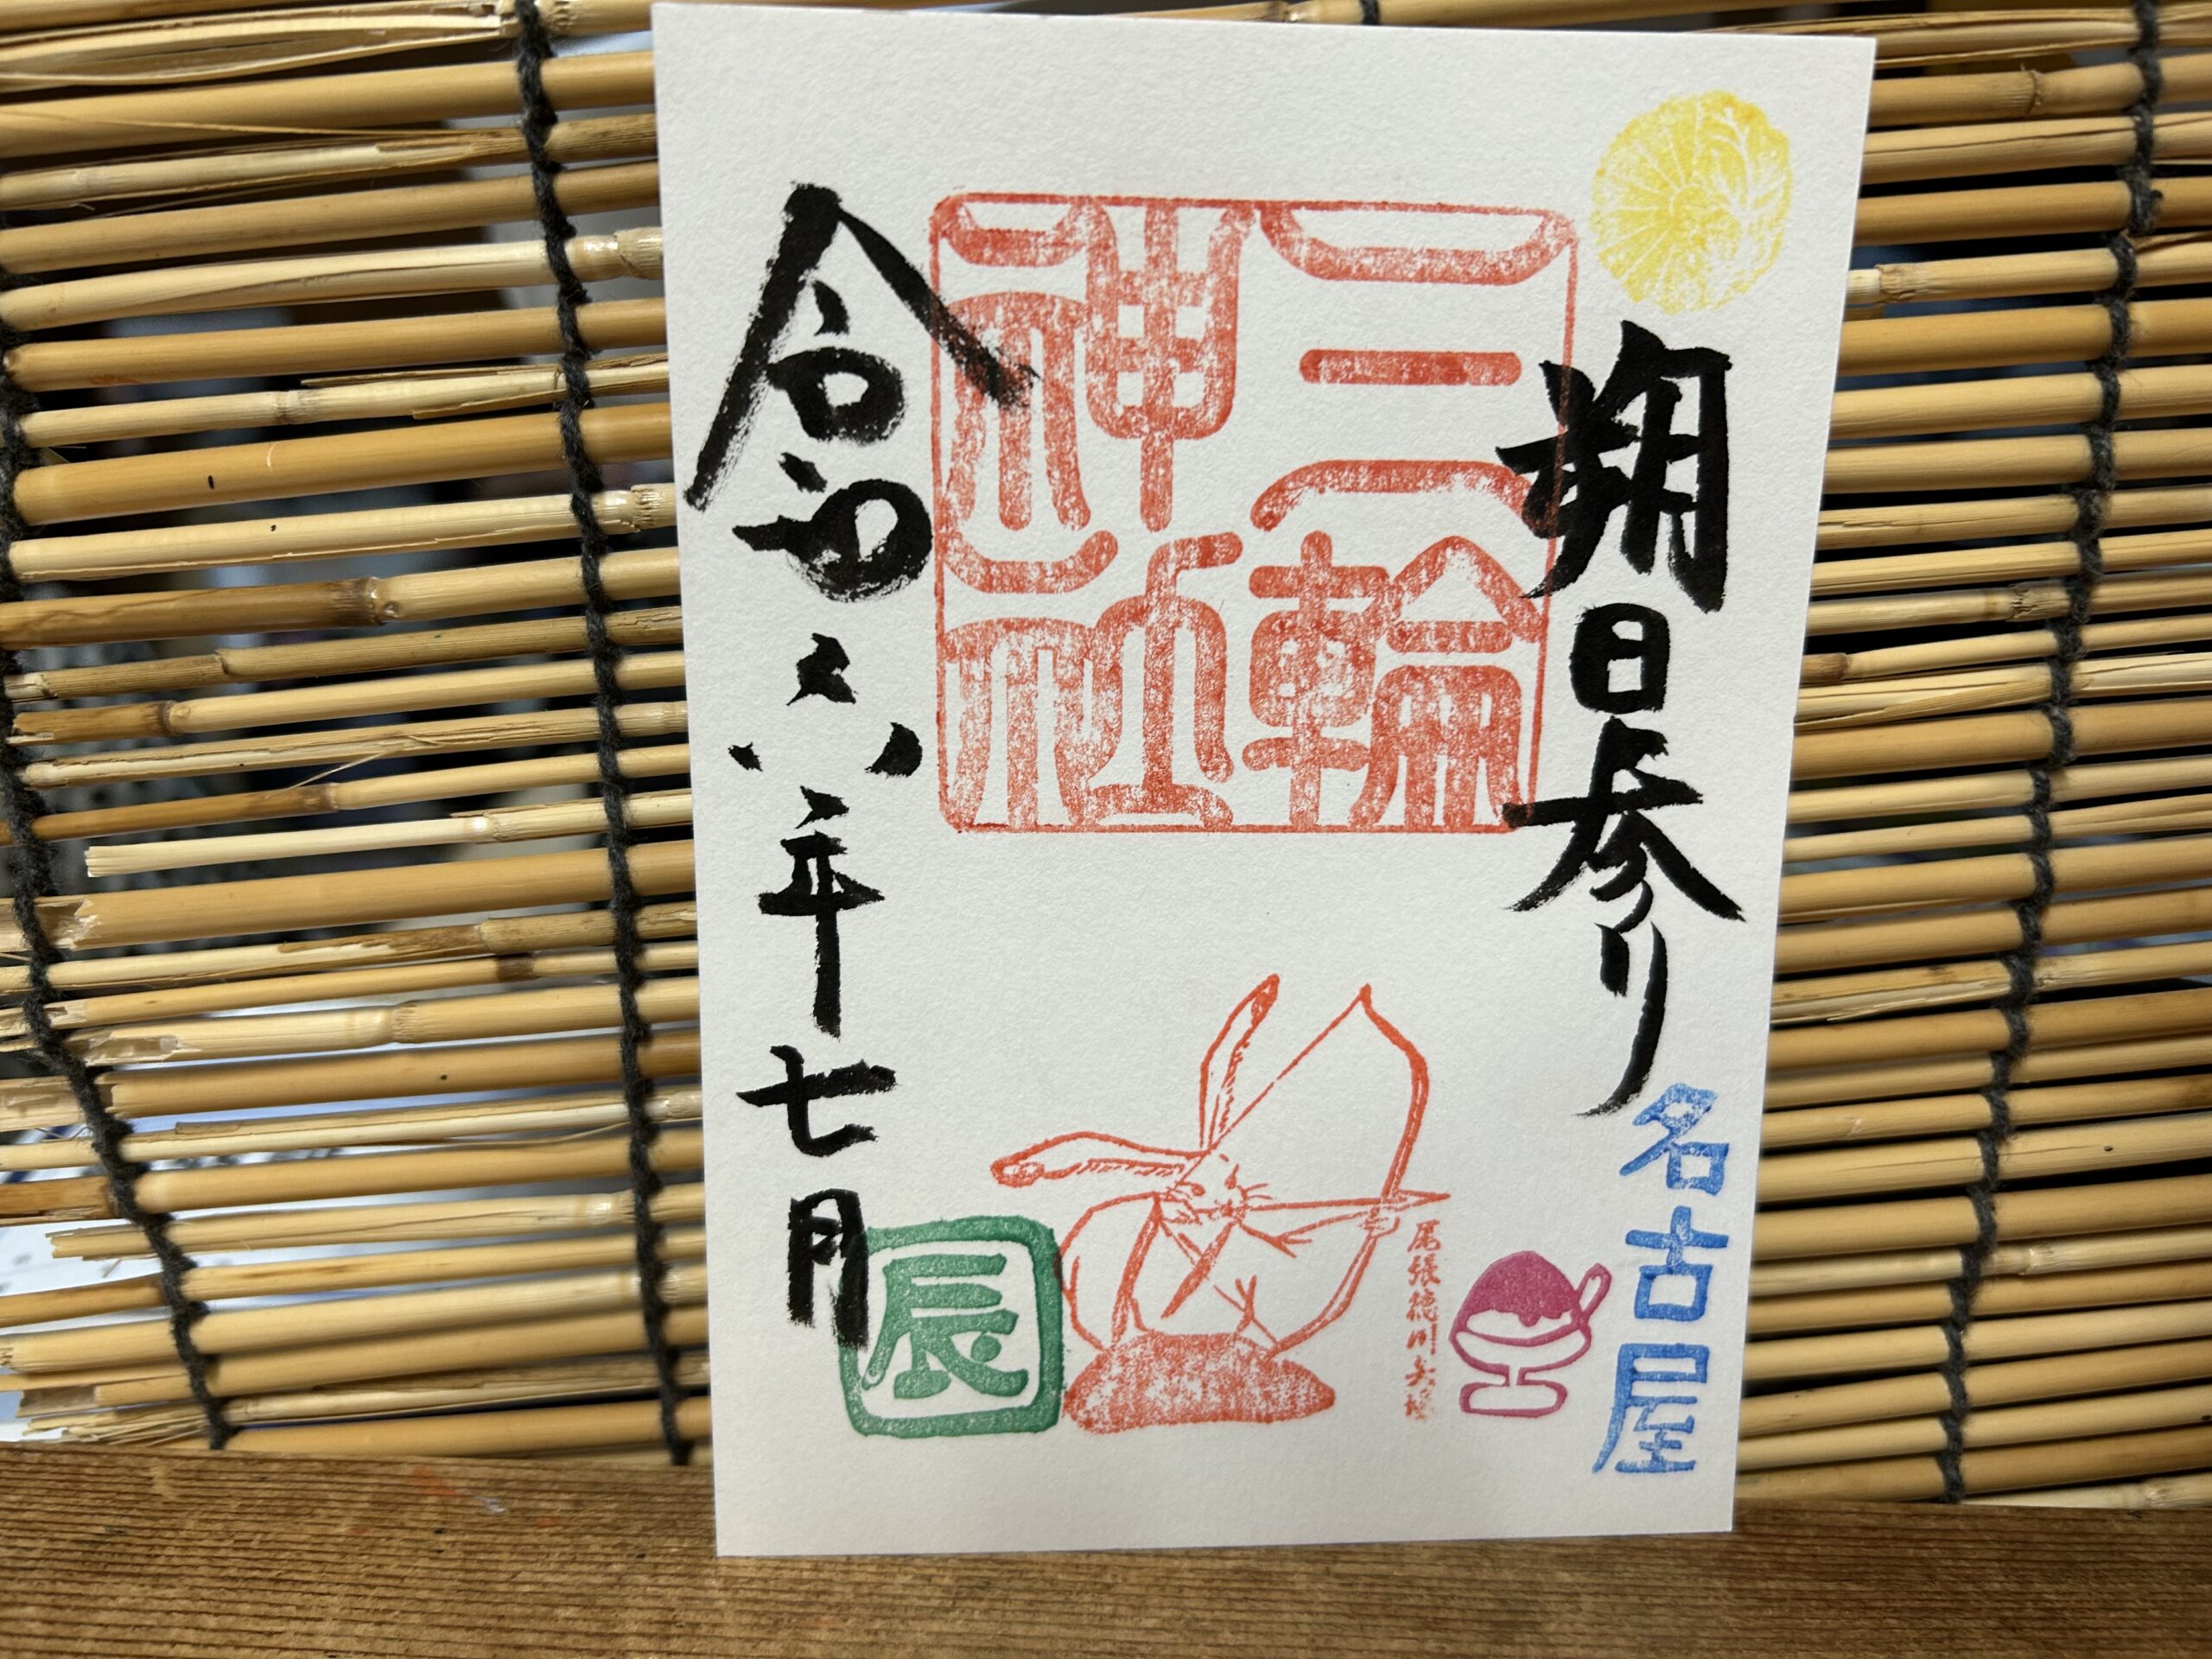 朔日参り
名古屋
三輪
神社
尾張徳川矢場
辰
令和六年七月